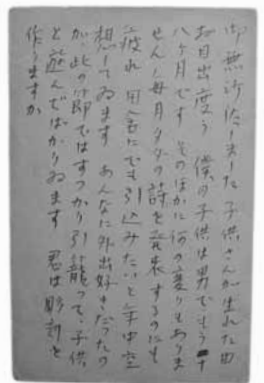 御無沙汰しました 子供さんが生れた由
お目出度う 僕の子供は男でもう十
八ヶ月です そのほかに何の変りもありま
せん 毎月夕夕の詩を発表するのにも
疲れ 田舎にでも引込みたいと年中空
想してゐます あんなに外出好きだつたの
が、此の節ではすつかり引籠つて、子供
と遊んでばかりゐます 君は彫刻を
作りますか